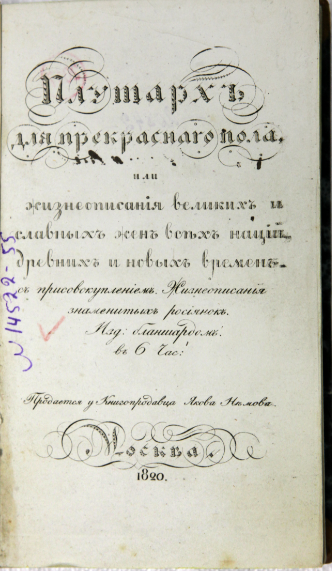 Плутархъ
для прекраснаго пола,
или
жизнеописанія великихъ и
славныхъ женъ всѣхъ націй
древнихъ и новыхъ временъ
съ присовокупленіемъ Жизнеописанія
знаменитыхъ росіянокъ.
Изд: бланшардомъ.
въ 6 Час:
Продается у Книгопродавца Якова
Москва.
1820.
N 14522-55